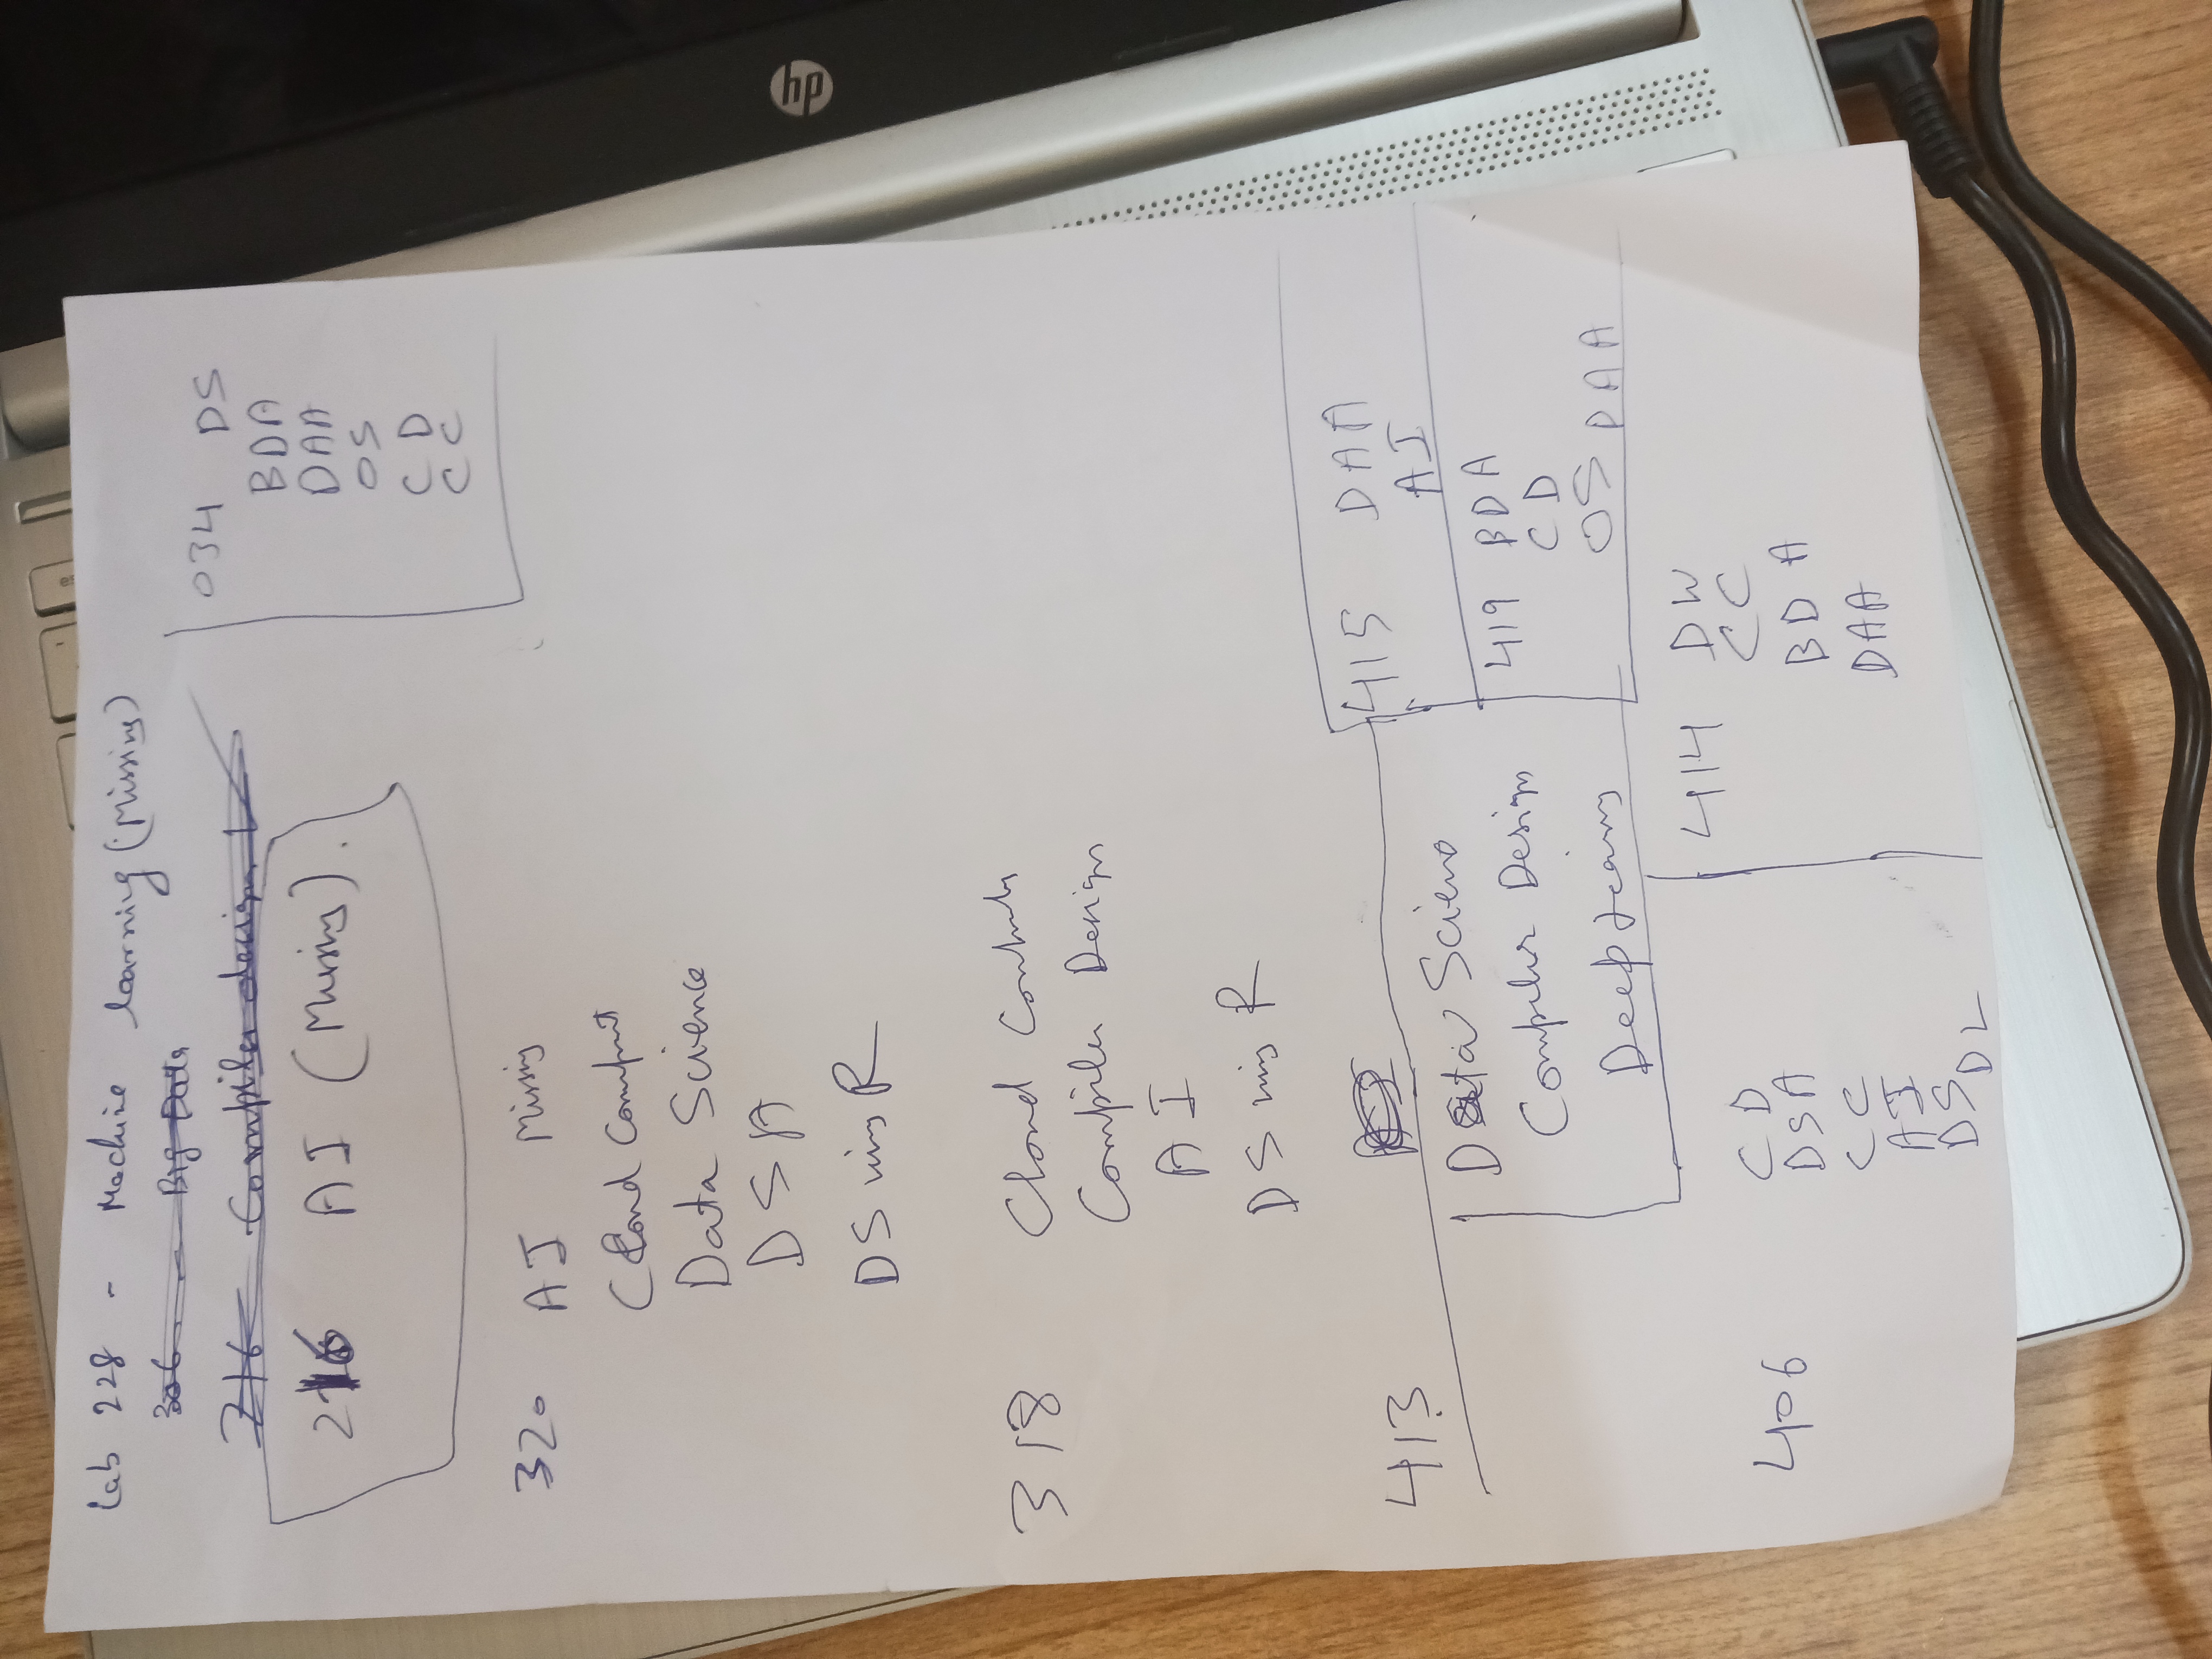 Lab 228 - Machine learning (Missing)
306 - Big Data
216 Compiler design
216 AI (Missing).
034 DS
BDA
DAA
OS
CD
CC
320 AI Missing
Cloud Comput
Data Science
DSA
DS using R
318 Cloud
Compiler Design
AI
DS using R
413
Data Science
Compiler Design
Deep Learning
415 DAA
AI
419 BDA
CD
OS DAA
406 CD
DSA
CC
AI
DS DL
414 DW
CC
BDA
DAA
hp